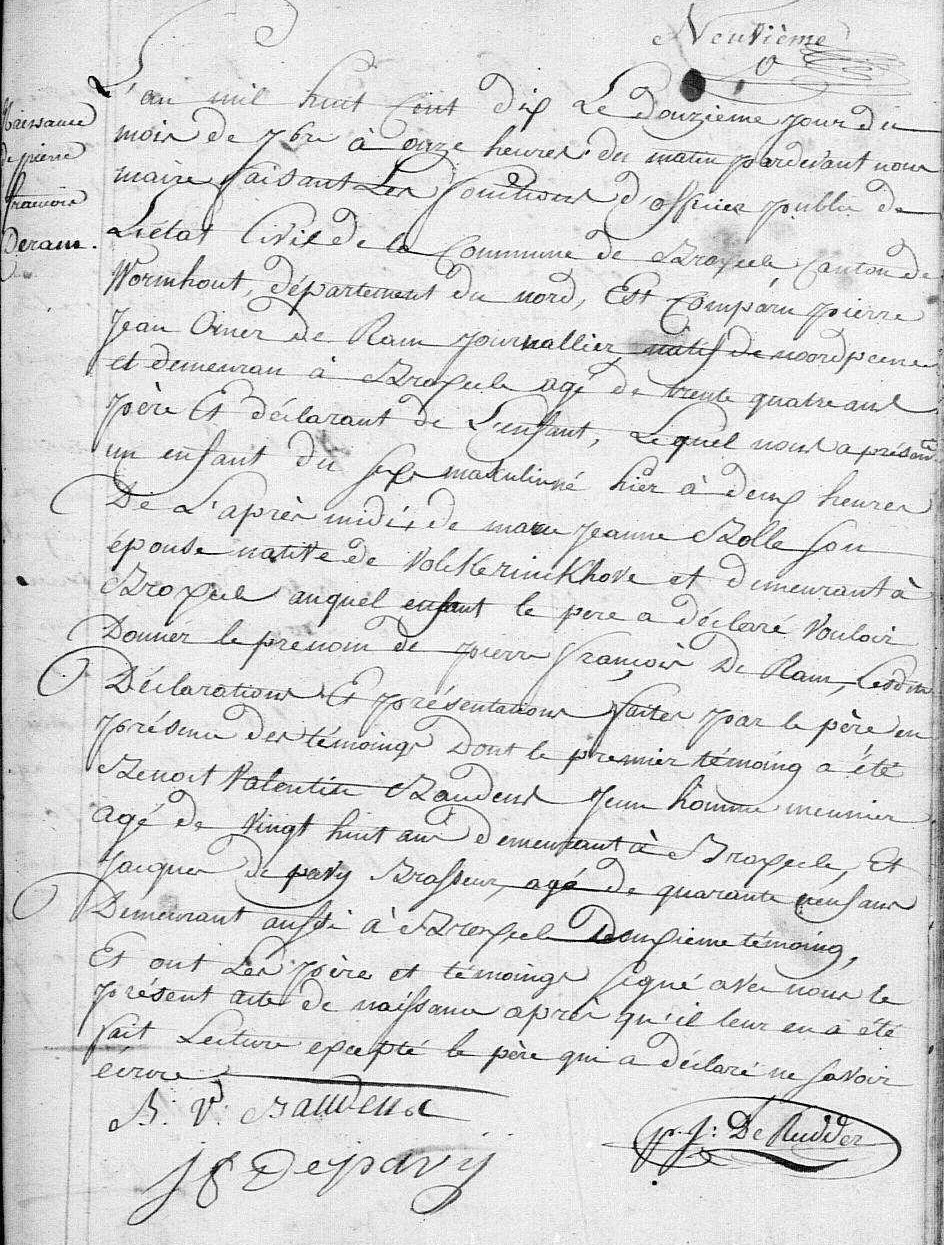 Neuvième
Naissance
de pierre
francois
Deram.
L'an mil huit Cent dix Le douzième jour du
mois de 7bre à onze heures du matin pardevant nous
maire faisant Les fonctions d'officier public de
L'état Civil de la Commune de Broxeele Canton de
Wormhout, département du nord, Est Comparu pierre
Jean Omer de Ram journallier, natif de noordpeene
et demeuran à Broxeele agé de trente quatre ans
père Et déclarant de L'enfant, Lequel nous a présenté
un enfant du sexe masculin né hier à deux heures
De L'après midi, de marie Jeanne Bolle son
épouse native de Volkerinckhove et demeurant à
Broxeele auquel enfant le pere a déclaré vouloir
Donner le prenom de pierre françois De Ram, Lesdites
Déclarations Et présentations faites par le père en
présence des témoings Dont le premier témoing a été
Benoit Valentin Baudens Jeune homme meunier
agé de vingt huit ans demeurant à Broxeele, Et
Jacques Depavy Brasseur, agé de quarante neuf ans
Demeurant aussi à Broxeele Deuxieme témoing,
Et ont Les père et témoings signé avec nous le
présent acte de naissance après qu'il leur en a été
fait Lecture excepté le père qui a déclaré ne savoir
ecrire
B: V: Baudens
p. J: De Rudder
J Depavij